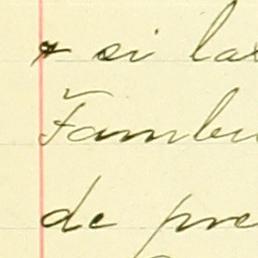 * si las
Fambu
de pre